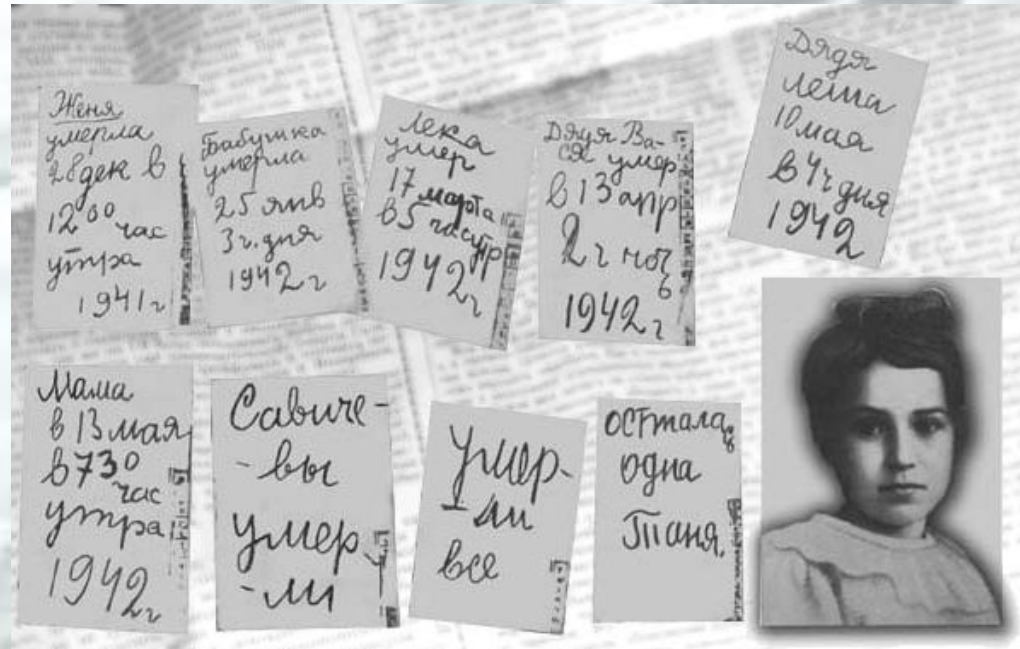 Женя
умерла
28 дек в
12 00 час
утра
1941 г
Бабушка
умерла
25 янв
3 ч. дня
1942 г
Лека
умер
17 марта
в 5 час утр
1942 г
Дядя Ва-
ся умер
в 13 апр
2 ч ноч
1942 г
Дядя
Леша
10 мая
в 4 ч дня
1942
Мама
в 13 мая
в 7 30
час
утра
1942 г
Савиче-
-вы
умер
-ли
Умер-
ли
все
Осталась
одна
Таня.